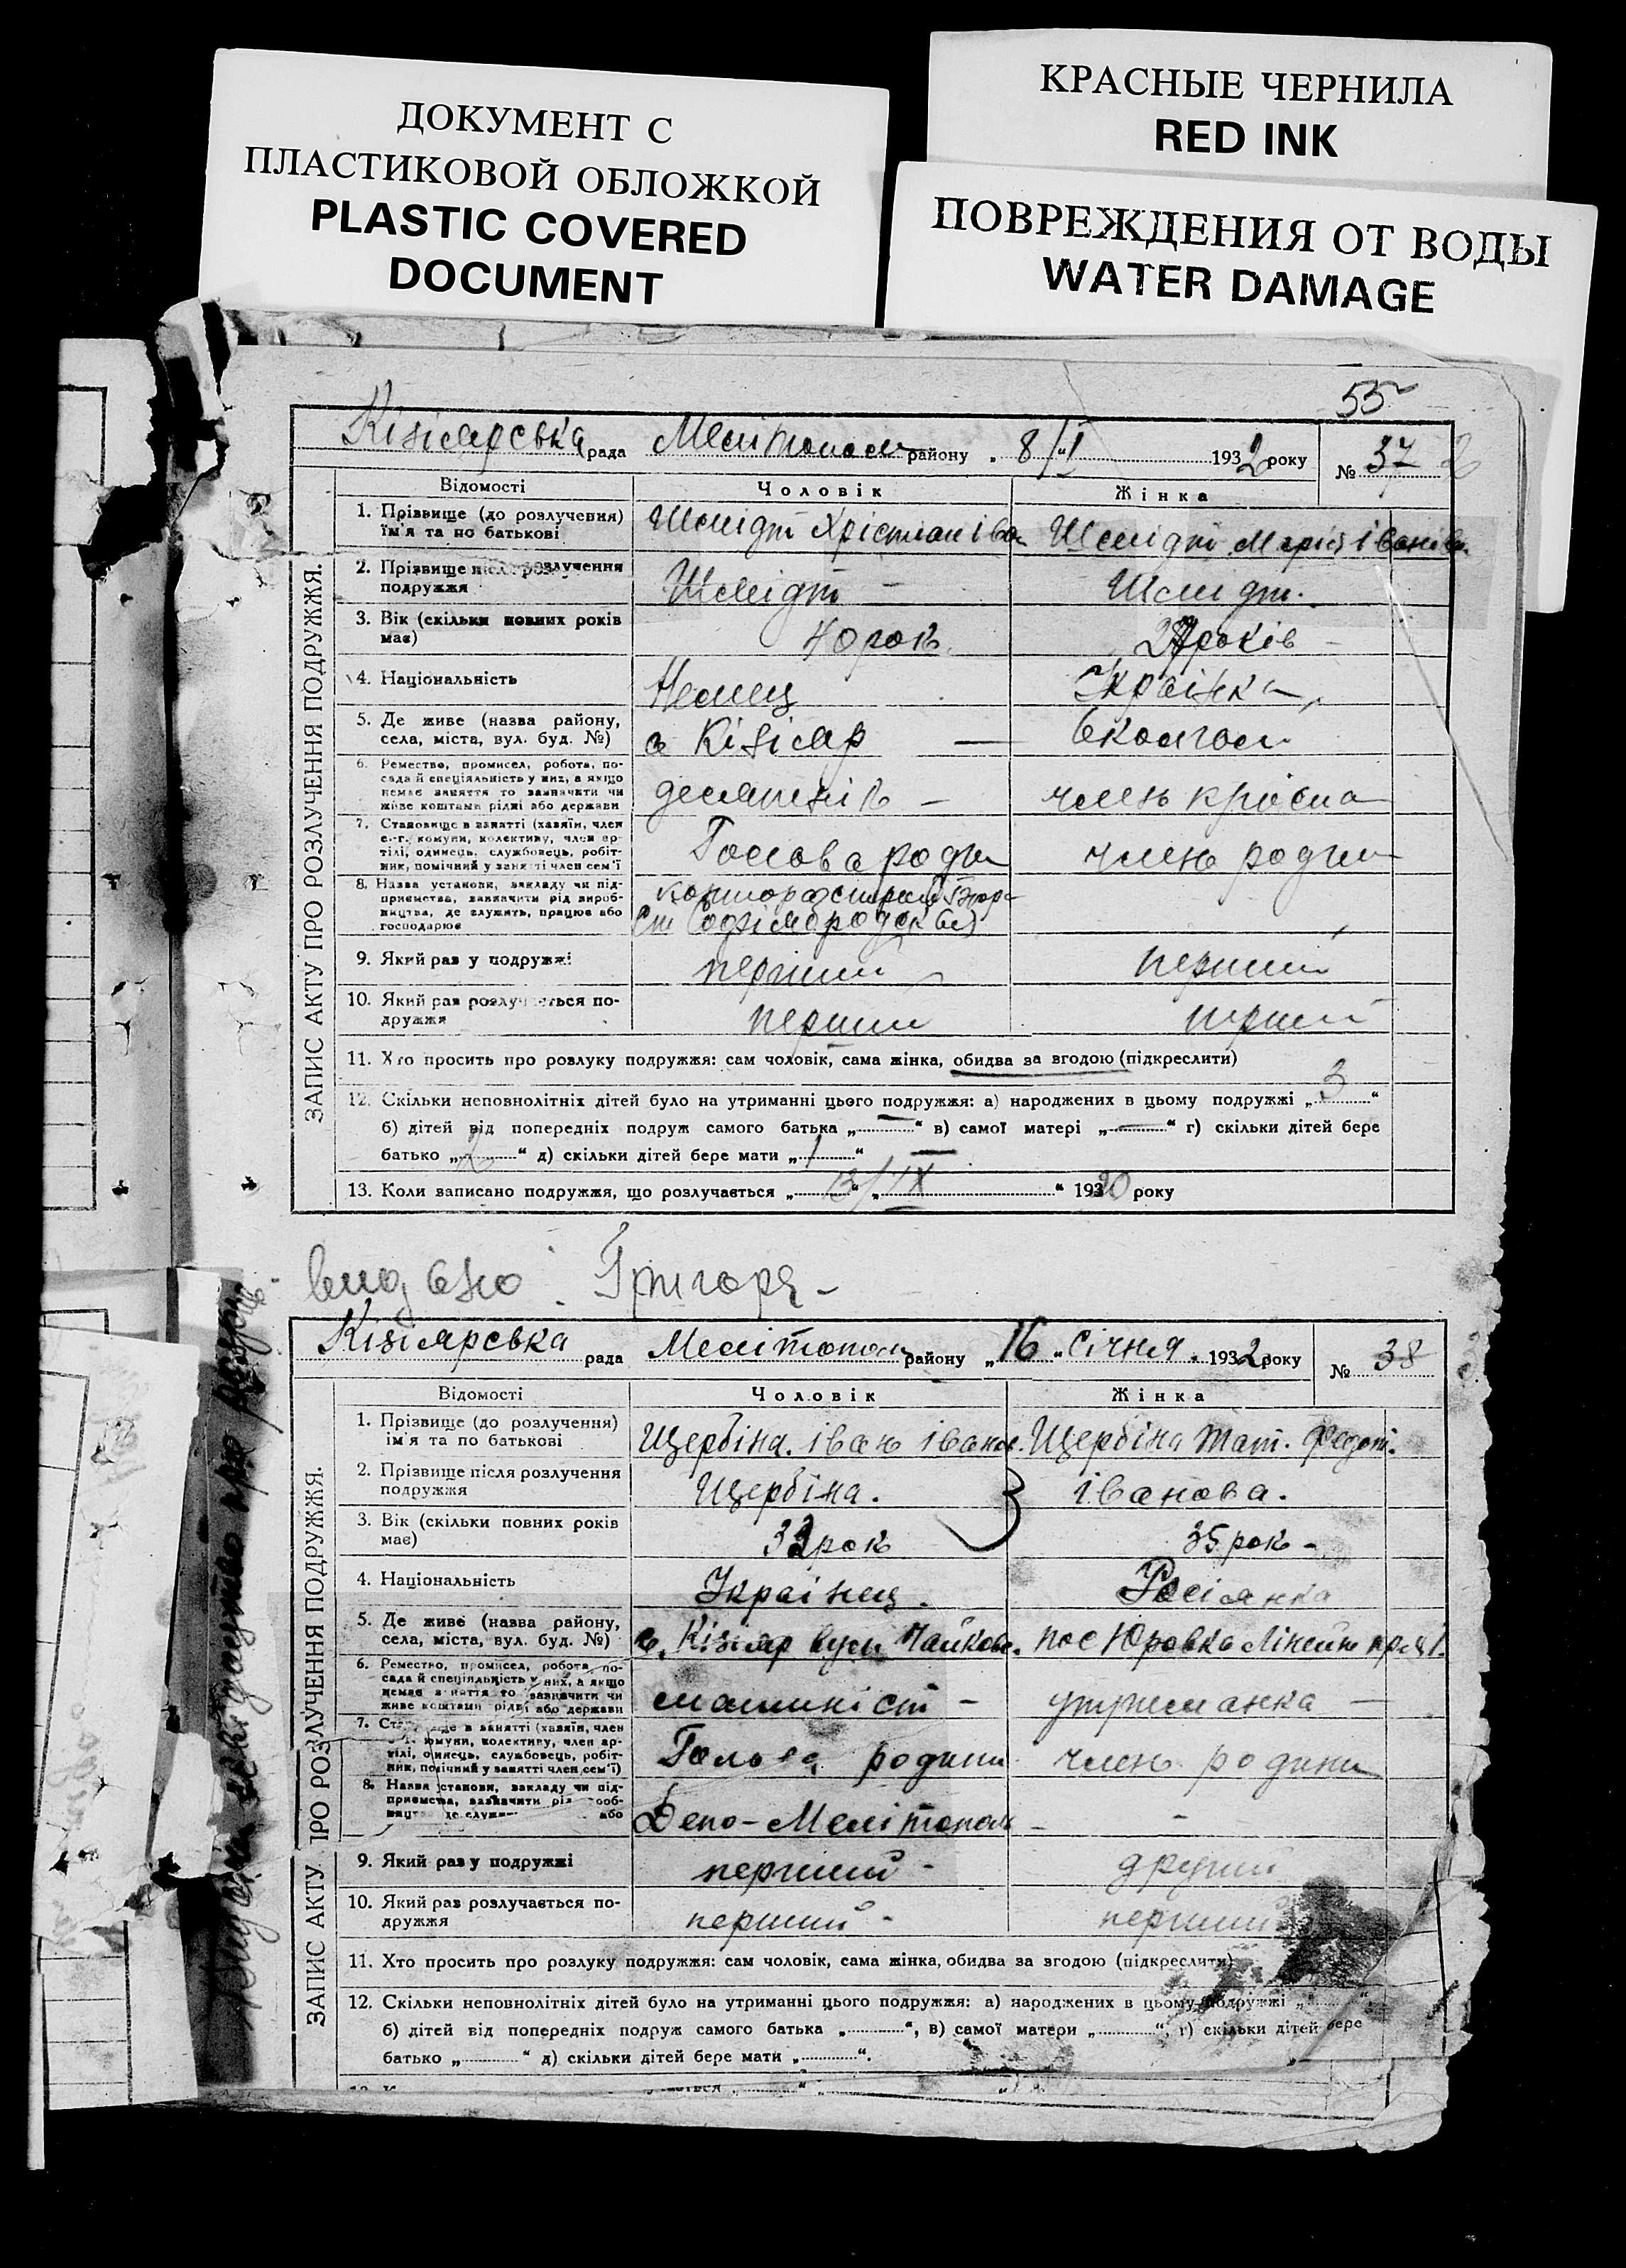 ДОКУМЕНТ С
ПЛАСТИКОВОЙ ОБЛОЖКОЙ
PLASTIC COVERED
DOCUMENT
КРАСНЫЕ ЧЕРНИЛА
RED INK
ПОВРЕЖДЕНИЯ ОТ ВОДЫ
WATER DAMAGE
55
Кізіярська рада Мелітополь району „ 8/I 1932 року № 37
ЗАПИС АКТУ ПРО РОЗЛУЧЕННЯ ПОДРУЖЖЯ.
Відомості Чоловік Жінка
1. Прізвище (до розлучення) Шмідт Християн Іва Шмідт Марія Іванів
їм'я та по батькові
2. Прізвище після розлучення Шмідт — Шмідт.
подружжя
3. Вік (скільки повних років 40 рок. 27 років —
має)
4. Національність Немец Українка
5. Де живе (назва району, с Кізіяр —
села, міста, вул. буд. №)
6. Ремество, промисел, робота, по-
сада й спеціяльність у них, а якщо
немає заняття то зазначити чи десятнік —
живе коштами рідні або держави
7. Становище в занятті (хазяїн, член
с.-г. комуни, колективу, член ар-
тілі, одинець, службовець, робіт- Голова роди член родин
ник, помічний у занятті член сем'ї
8. Назва установи, закладу чи під-
приємства, зазначити рід вироб-
ництва, де служить, працює або
господарює
9. Який раз у подружжі перший перший
10. Який раз розлучається по- перший перший
дружжя
11. Хто просить про розлуку подружжя: сам чоловік, сама жінка, обидва за згодою (підкреслити)
12. Скільки неповнолітніх дітей було на утриманні цього подружжя: а) народжених в цьому подружжі „ 3 “
б) дітей від попередніх подруж самого батька „ — “ в) самої матері „ — “ г) скільки дітей бере
батько „ 2 “ д) скільки дітей бере мати „ 1 “ —
13. Коли записано подружжя, що розлучається „ 13/IX “ 1920 року
Григоря —
Кізіярська рада Мелітополь району „ 16 “ Січня . 1932 року № 38
ЗАПИС АКТУ ПРО РОЗЛУЧЕННЯ ПОДРУЖЖЯ.
Відомості Чоловік Жінка
1. Прізвище (до розлучення) Щербіна. Іван Іванов. Щербіна Тат. Федот.
їм'я та по батькові
2. Прізвище після розлучення Щербіна. Іванова.
подружжя
3. Вік (скільки повних років 33 рок 35 рок —
має)
4. Національність Українец. Росіянка
5. Де живе (назва району, с. Кізіяр вул Чайков. пос Юровка Лінейн
села, міста, вул. буд. №)
6. Ремество, промисел, робота, по-
сада й спеціяльність у них, а якщо
немає заняття то зазначити чи машиніст — утриманка —
живе коштами рідні або держави
7. Становище в занятті (хазяїн, член
комуни, колективу, член ар-
тілі, одинець, службовець, робіт- Голова родини член родини
ник, помічний у занятті член сем'ї)
8. Назва установи, закладу чи під-
приємства, зазначити рід вироб-
ництва де служить або Депо-Мелітополь — -
9. Який раз у подружжі перший — другий
10. Який раз розлучається по- перший — перший
дружжя
11. Хто просить про розлуку подружжя: сам чоловік, сама жінка, обидва за згодою (підкреслити)
12. Скільки неповнолітніх дітей було на утриманні цього подружжя: а) народжених в цьому подружжі „ “
б) дітей від попередніх подруж самого батька „ “, в) самої матери „ “, г) скільки дітей бере
батько „ “ д) скільки дітей бере мати „ “.